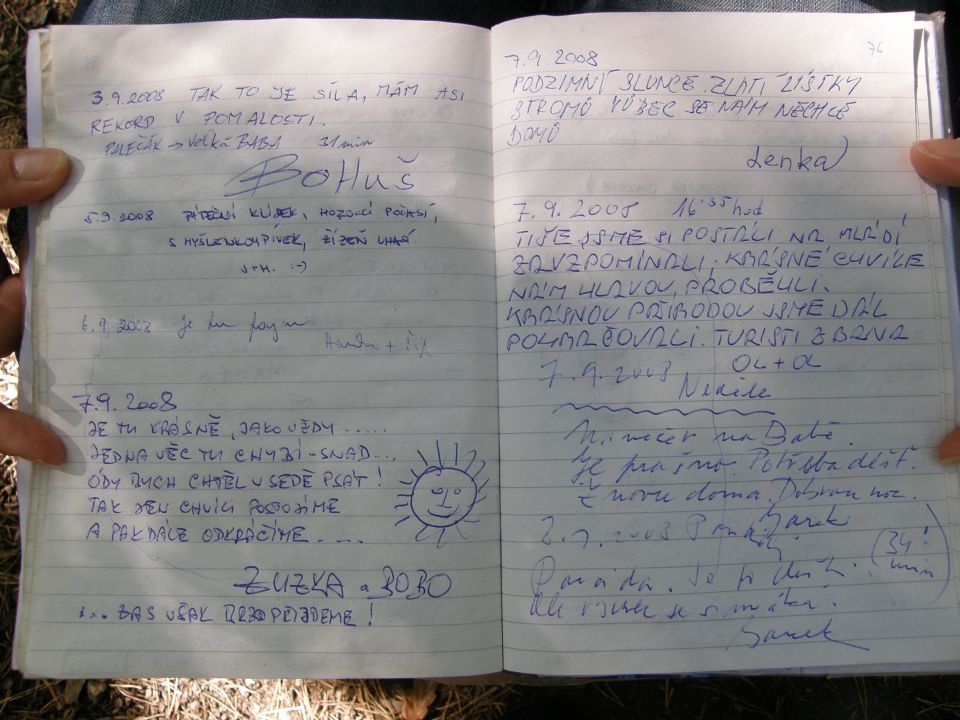 3.9.2008 TAK TO JE SÍLA, MÁM ASI
REKORD V POMALOSTI.
PALEČÁK → Velká BABA 31 min
BOHUŠ
5.9.2008 PÁTEČNÍ KLÍDEK, HOZOUCÍ POČASÍ,
S MYŠLENKOU PÍVEK, ŽÍZEŇ UHASÍ.
:-)
6.9.2008 je tu fajn
7.9.2008
JE TU KRÁSNĚ, JAKO VŽDY .....
JEDNA VĚC TU CHYBÍ - SNAD ...
ÓDY BYCH CHTĚL V SEDĚ PSÁT!
TAK JEN CHVÍLI POSTOJÍME
A PAK DÁLE ODKRÁČÍME ....
ZUZKA a BOBO
.... ZAS VŠAK BRZO PŘIJDEME!
76
7.9.2008
PODZIMNÍ SLUNCE ZLATÍ LÍSTKY
STROMŮ VŮBEC SE NÁM NECHCE
DOMŮ
Lenka
7.9.2008 16.55 hod
TIŠE JSME SI POSTÁLI NA MLÁDÍ
ZAVZPOMÍNALI. KRÁSNÉ CHVÍLE
NÁM HLAVOU PROBĚHLI.
KRÁSNOU PŘÍRODOU JSME DÁL
POKRAČOVALI. TURISTI Z BRNA
OL + OL
7.9.2008 Neděle
na Babě.
Je prašno. Potřeba déšť.
Znovu doma. Dobrou noc.
Jarek
2008
Paráda. Je po dešti. (34! min)
Ale se smráká.
Jarek